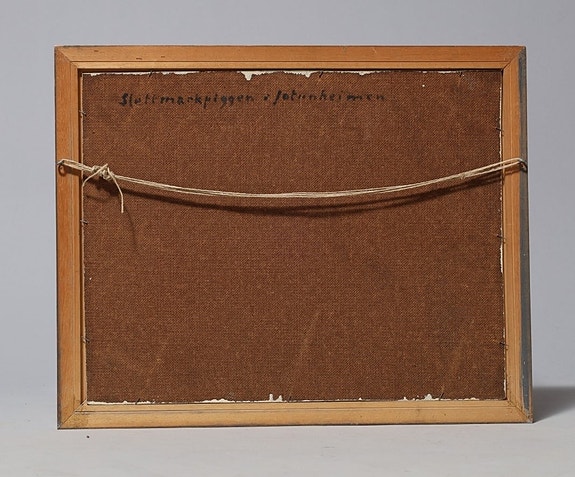 Slettmarkpiggen i Jotunheimen